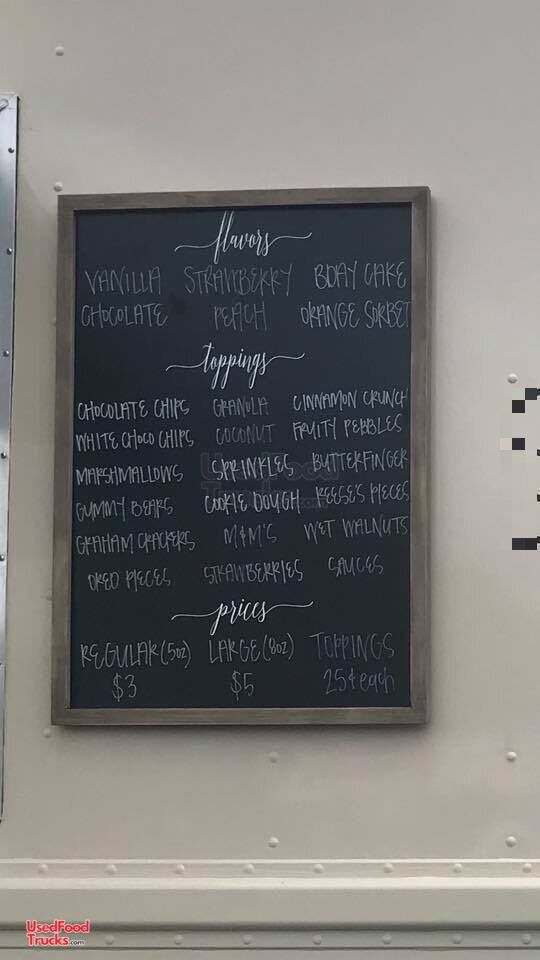 flavors
VANILLA STRAWBERRY BDAY CAKE
CHOCOLATE PEACH ORANGE SORBET
toppings
CHOCOLATE CHIPS GRANOLA CINNAMON CRUNCH
WHITE CHOCO CHIPS COCONUT FRUITY PEBBLES
MARSHMALLOWS SPRINKLES BUTTERFINGER
GUMMY BEARS COOKIE DOUGH REESE'S PIECES
GRAHAM CRACKERS M&M'S WET WALNUTS
OREO PIECES STRAWBERRIES SAUCES
prices
REGULAR (5oz) LARGE (8oz) TOPPINGS
$3 $5 25¢ each
UsedFood
Trucks.com